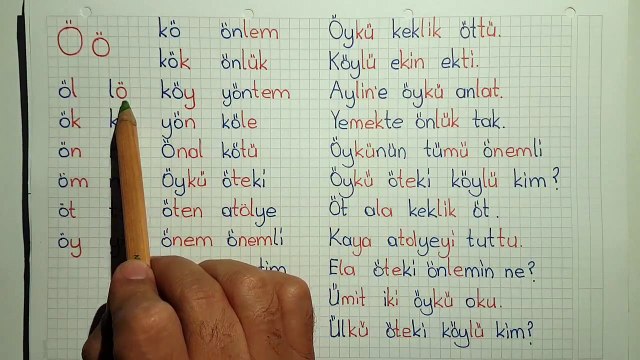 Ö ö kö önlem Öykü keklik öttü.
kök önlük Köylü ekin ekti.
öl lö köy yöntem Aylin'e öykü anlat.
ök yön köle Yemekte önlük tak.
ön Önal kötü Öykünün tümü önemli
öm Öykü öteki Öykü öteki köylü kim?
öt öten atölye Öt ala keklik öt.
öy önem önemli Kaya atolyeyi tuttu.
Ela öteki önlemin ne?
Ümit iki öykü oku.
Ülkü öteki köylü kim?